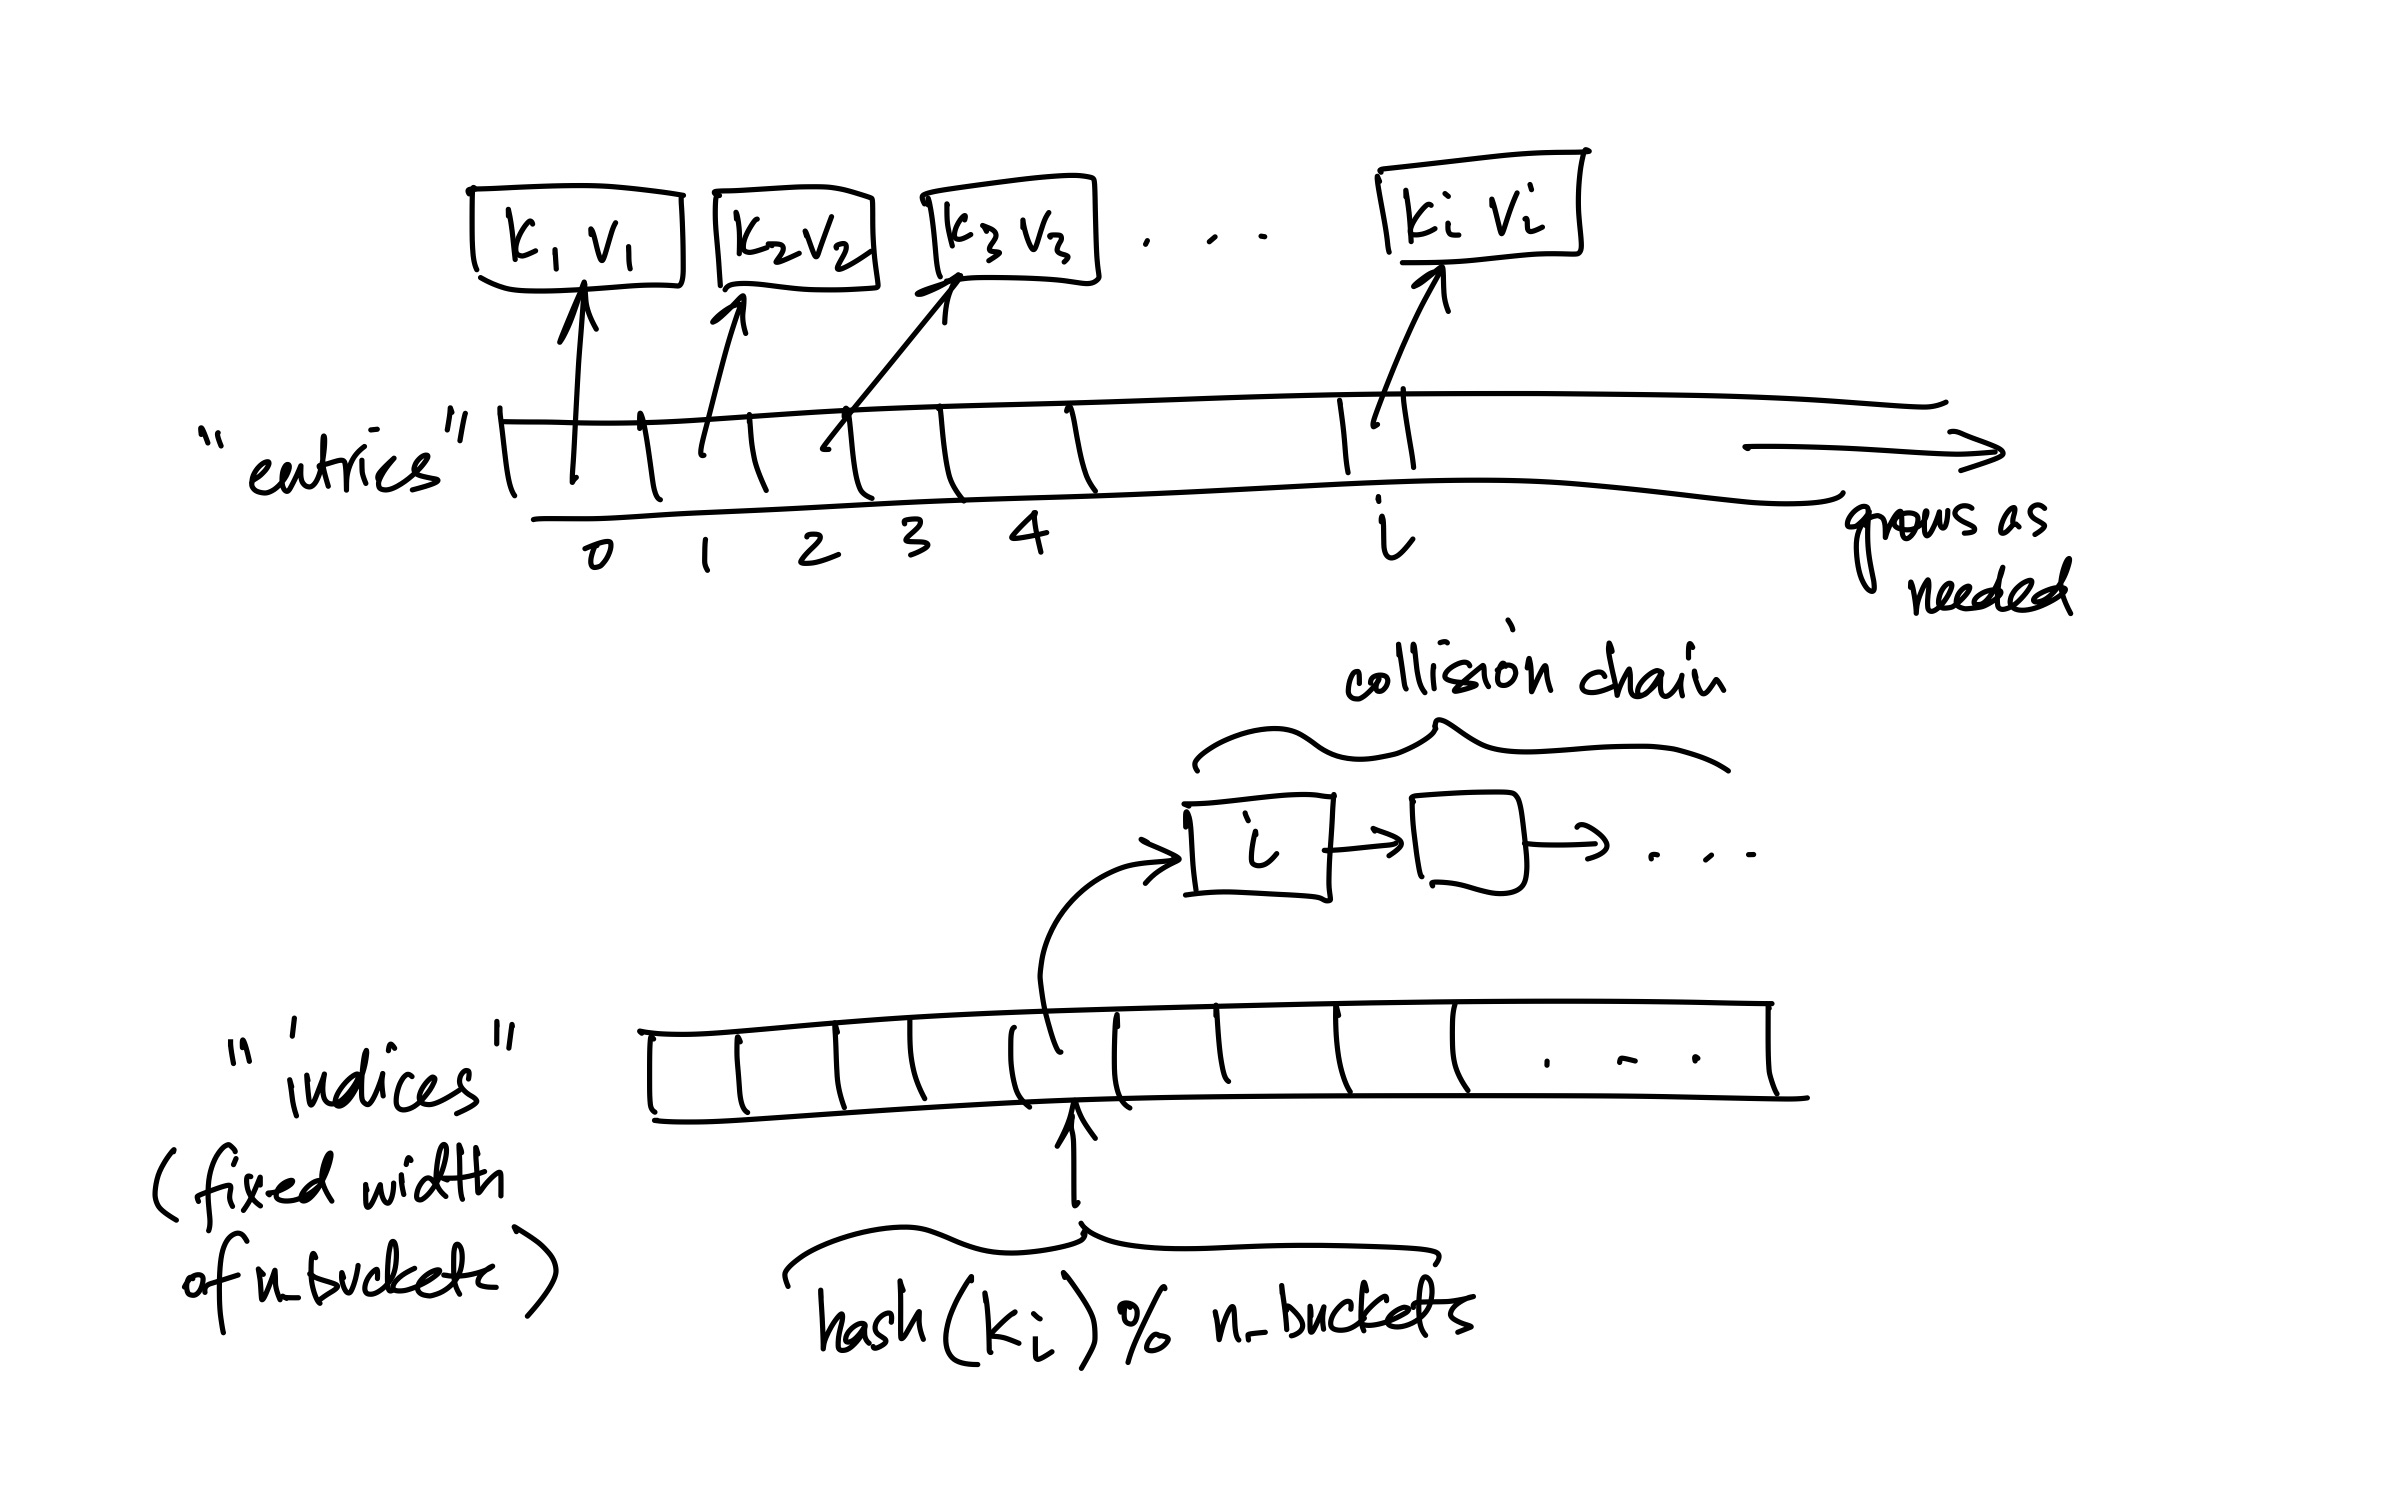 k1 v1 k2 v2 k3 v3 . . . ki vi
"entries"
0 1 2 3 4 i
grows as
needed
collision chain
i . . .
"indices"
. . .
(fixed width
of n_buckets)
hash(ki) % n_buckets